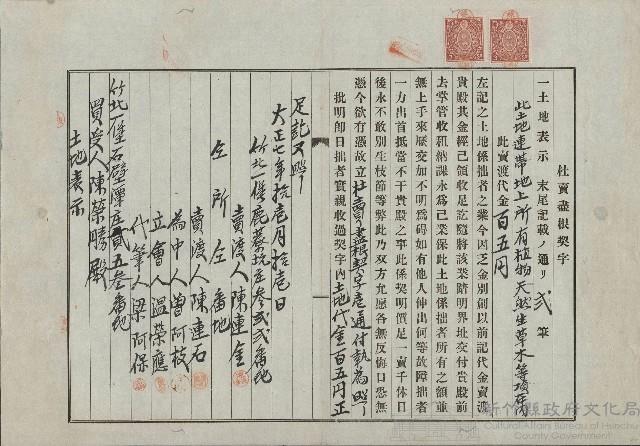 杜賣盡根契字
一土地表示 末尾記載ノ通リ 弐筆
此土地連帶地上所有植物天然生草木等項在內
此賣渡代金 百五円
左記之土地係拙者之業今因乏金別創以前記代金賣渡
貴殿其金經已領收足訖隨將該業踏明界址交付貴殿前
去掌管收租納課永爲己業保此土地係拙者所有之額並
無上手來歷交加不明爲碍如有他人伸出何等故障拙者
一力出首抵當不干貴殿之事此係契明價足一賣千休日
後永不敢別生枝節等弊此乃双方允愿各無反悔口恐無
憑今欲有憑故立杜賣盡根契字壱通付執為照
批明即日拙者實親收過契字內土地代金百五円正
足訖又照
大正七年拾壱月拾壱日
竹北一堡鹿藔坑庄参弐弐番地
賣渡人陳連金
仝所仝番地
賣渡人陳連石
為中人曾阿枝
立會人溫榮應
代筆人梁阿保
竹北一堡石壁潭庄貳五参番地
買受人陳榮勝殿
土地表示
新竹縣政府文化局
Cultural Affairs Bureau of Hsinchu
County Government